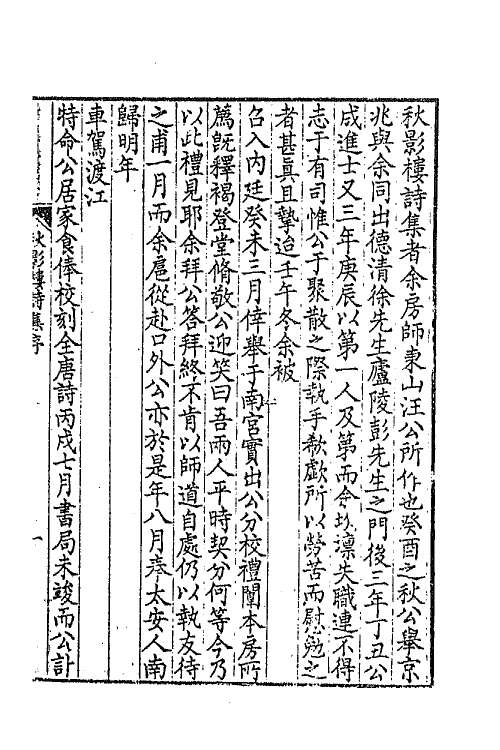 秋影樓詩集者余房師東山汪公所作也癸酉之秋公舉京
兆與余同出德清徐先生廬陵彭先生之門後三年丁丑公
成進士又三年庚辰以第一人及第而余以凛失職連不得
志于有司惟公于聚散之際執手欷歔所以勞苦而慰勉之
者甚眞且摯迨壬午冬余被
召入内廷癸未三月倖舉于南宮實出公分校禮闈本房所
薦既釋褐登堂脩敬公迎笑曰吾兩人平時契分何等今乃
以此禮見耶余拜公答拜終不肯以師道自處仍以執友待
之甫一月而余扈從赴口外公亦於是年八月奉太安人南
歸明年
車駕渡江
特命公居家食俸校刻全唐詩丙戌七月書局未竣而公訃
秋影樓詩集序
一